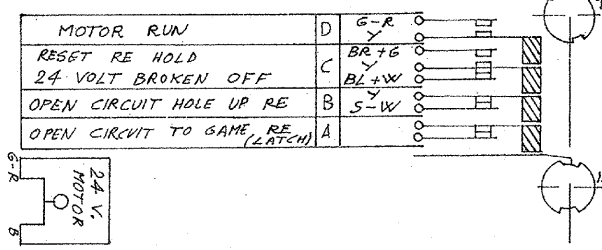 MOTOR RUN D G-R
Y
RESET RE HOLD C BR+G
Y
24 VOLT BROKEN OFF BL+W
Y
OPEN CIRCUIT HOLE UP RE B S-W
OPEN CIRCUIT TO GAME RE A
(LATCH)
G-R
24 V.
MOTOR
B